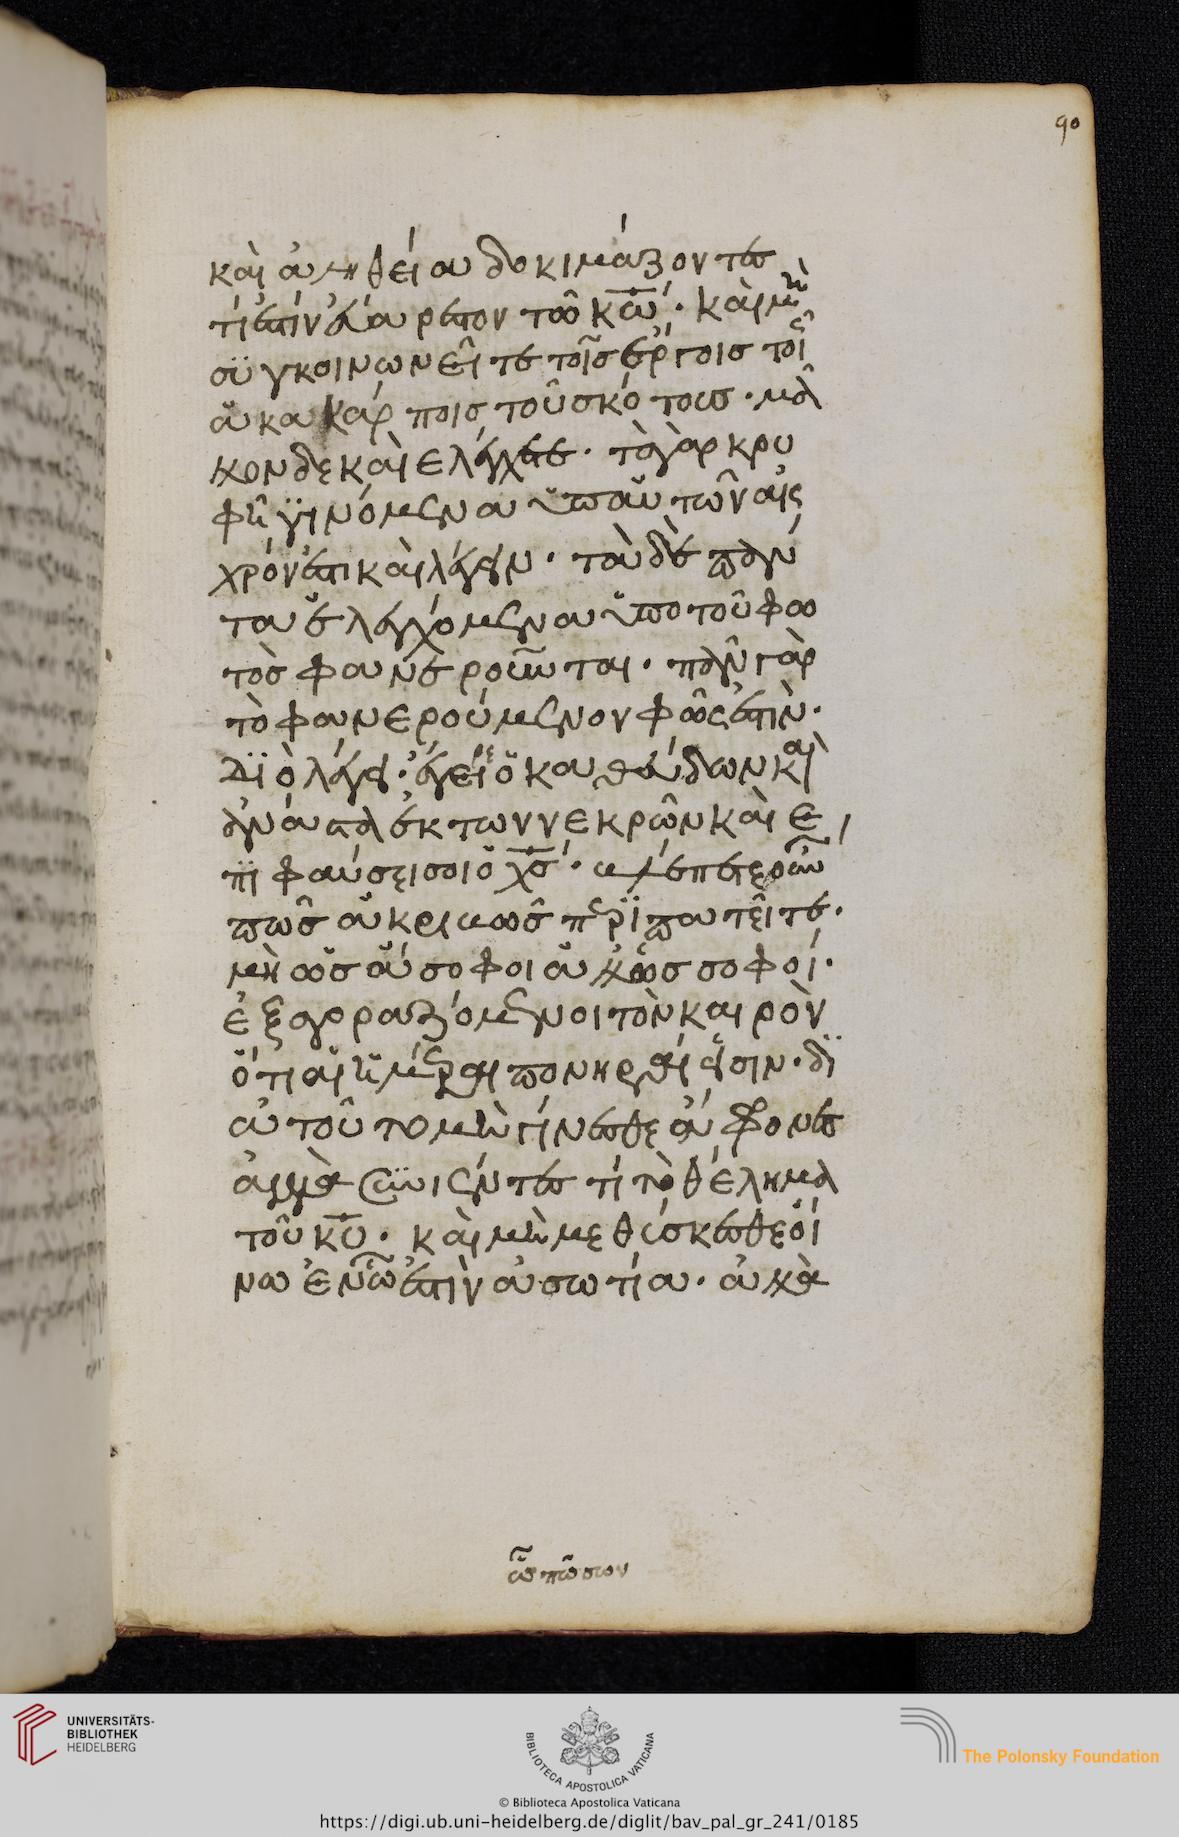 90
καὶ ἀληθεία δοκιμάζοντες
τί ἐστὶν εὐάρεστον τῶ κ̅ω̅. καὶ μὴ
συγκοινωνεῖτε τοῖς ἔργοις τοῖς
ἀκάρποις τοῦ σκότους. μᾶλ
λον δὲ καὶ ἐλέγχετε. τὰ γὰρ κρυ
φῆ γινόμενα ὑπ' αὐτῶν αἰσ
χρόν ἐστι καὶ λέγειν. τὰ δὲ πάν
τα ἐλεγχόμενα ὑπὸ τοῦ φω
τὸς φανεροῦνται. πᾶν γὰρ
τὸ φανερούμενον φῶς ἐστὶν.
διὸ λέγει. ἔγειρε ὁ καθεύδων καὶ
ἀνάστα ἐκ τῶν νεκρῶν καὶ ἐ
πιφαύσει σοι ὁ χ̅ς̅. βλέπετε οὖν
πῶς ἀκριβῶς περιπατεῖτε.
μὴ ὡς ἄσοφοι ἀλλ' ὡς σοφοί.
ἐξαγοραζόμενοι τὸν καιρὸν
ὅτι αἱ ἡμέραι πονηραί εἰσιν. δι
ὰ τοῦτο μὴ γίνεσθε ἄφρονες
ἀλλὰ συνιέντες τί τὸ θέλημα
τοῦ κ̅υ̅. καὶ μὴ μεθύσκεσθε οἴ
νω ἐν ᾧ ἐστὶν ἀσωτία. ἀλλὰ
UNIVERSITÄTS-
BIBLIOTHEK
HEIDELBERG
BIBLIOTECA APOSTOLICA VATICANA
The Polonsky Foundation
© Biblioteca Apostolica Vaticana
https://digi.ub.uni-heidelberg.de/diglit/bav_pal_gr_241/0185